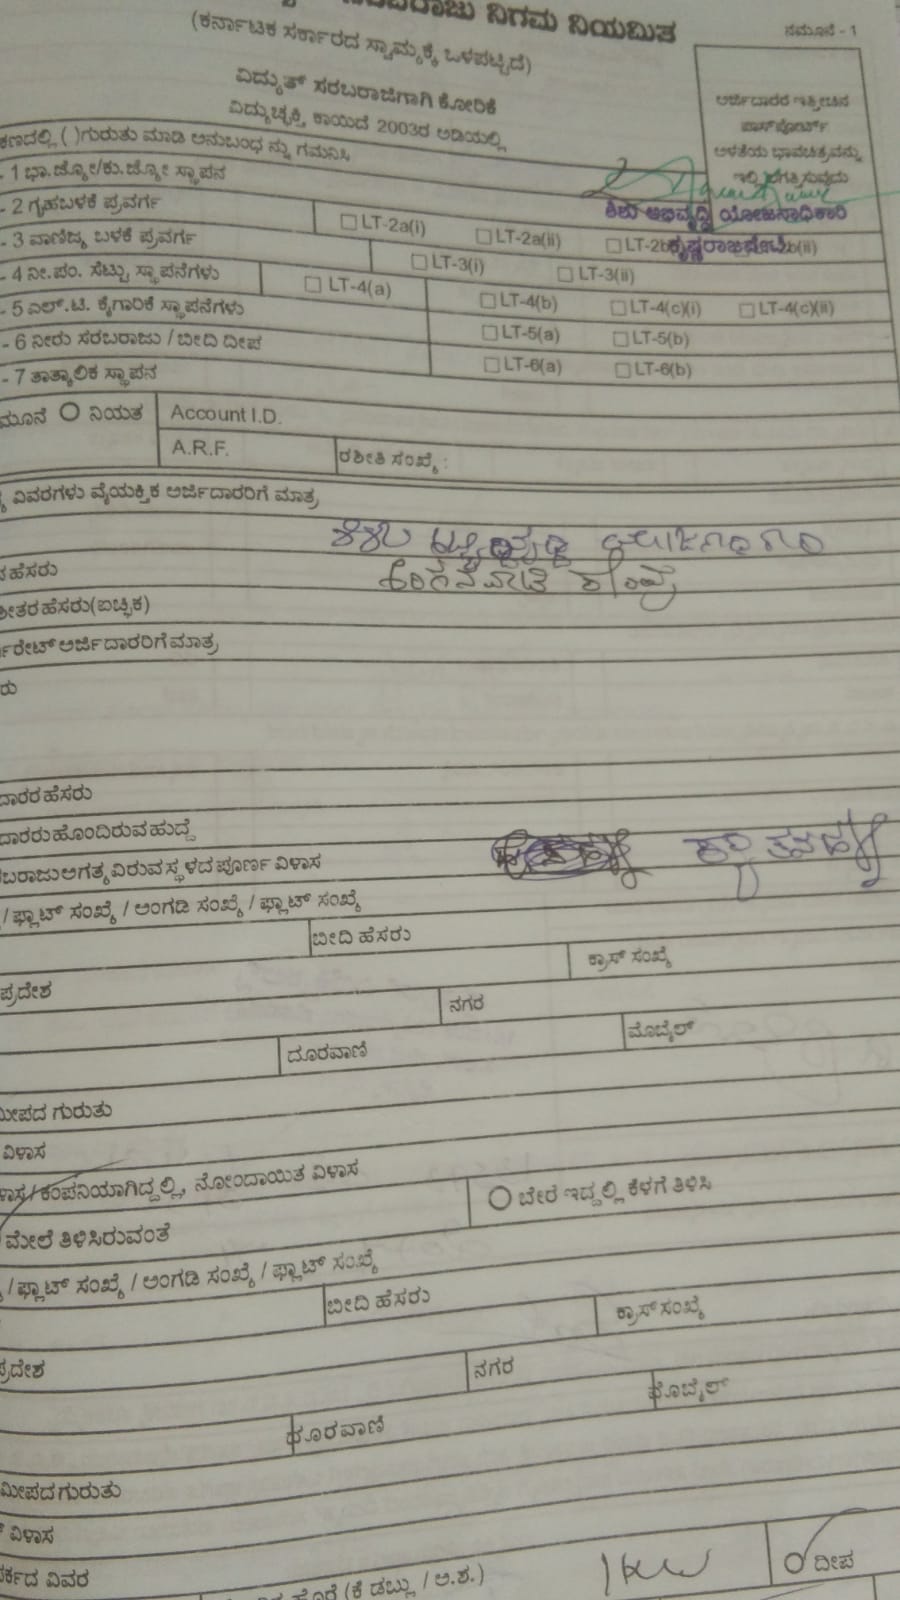 ನಿಗಮ ನಿಯಮಿತ
ನಮೂನೆ - 1
(ಕರ್ನಾಟಕ ಸರ್ಕಾರದ ಸ್ವಾಮ್ಯಕ್ಕೆ ಒಳಪಟ್ಟಿದೆ)
ವಿದ್ಯುತ್ ಸರಬರಾಜಿಗಾಗಿ ಕೋರಿಕೆ
ವಿದ್ಯುಚ್ಛಕ್ತಿ ಕಾಯಿದೆ 2003ರ ಅಡಿಯಲ್ಲಿ
ಅರ್ಜಿದಾರರ ಇತ್ತೀಚಿನ
ಪಾಸ್‌ಪೋರ್ಟ್
ಅಳತೆಯ ಭಾವಚಿತ್ರವನ್ನು
ಇಲ್ಲಿ ಲಗತ್ತಿಸುವುದು
( )ಗುರುತು ಮಾಡಿ ಅನುಬಂಧ ನ್ನು ಗಮನಿಸಿ
ಶಿಶು ಅಭಿವೃದ್ಧಿ ಯೋಜನಾಧಿಕಾರಿ
ಕೃಷ್ಣರಾಜಪೇಟೆ
- 1 ಭಾ.ಜ್ಯೋ/ಕು.ಜ್ಯೋ ಸ್ಥಾಪನ
- 2 ಗೃಹಬಳಕೆ ಪ್ರವರ್ಗ ☐ LT-2a(i) ☐ LT-2a(ii) ☐ LT-2b b(ii)
- 3 ವಾಣಿಜ್ಯ ಬಳಕೆ ಪ್ರವರ್ಗ ☐ LT-3(i) ☐ LT-3(ii)
- 4 ನೀ.ಪಂ. ಸೆಟ್ಟು ಸ್ಥಾಪನೆಗಳು ☐ LT-4(a) ☐ LT-4(b) ☐ LT-4(c)(i) ☐ LT-4(c)(ii)
- 5 ಎಲ್.ಟಿ. ಕೈಗಾರಿಕೆ ಸ್ಥಾಪನೆಗಳು ☐ LT-5(a) ☐ LT-5(b)
- 6 ನೀರು ಸರಬರಾಜು / ಬೀದಿ ದೀಪ ☐ LT-6(a) ☐ LT-6(b)
- 7 ತಾತ್ಕಾಲಿಕ ಸ್ಥಾಪನ
ನಿಯತ Account I.D.
A.R.F. ರಶೀತಿ ಸಂಖ್ಯೆ :
ವಿವರಗಳು ವೈಯಕ್ತಿಕ ಅರ್ಜಿದಾರರಿಗೆ ಮಾತ್ರ
ಹೆಸರು
ಹೆಸರು(ಐಚ್ಛಿಕ)
ಅರ್ಜಿದಾರರಿಗೆ ಮಾತ್ರ
ದಾರರ ಹೆಸರು
ದಾರರು ಹೊಂದಿರುವ ಹುದ್ದೆ
ಬರಾಜು ಅಗತ್ಯವಿರುವ ಸ್ಥಳದ ಪೂರ್ಣ ವಿಳಾಸ
/ ಫ್ಲಾಟ್ ಸಂಖ್ಯೆ / ಅಂಗಡಿ ಸಂಖ್ಯೆ / ಫ್ಲಾಟ್ ಸಂಖ್ಯೆ
ಬೀದಿ ಹೆಸರು
ಕ್ರಾಸ್ ಸಂಖ್ಯೆ
ಪ್ರದೇಶ
ನಗರ
ದೂರವಾಣಿ ಮೊಬೈಲ್
ಮೀಪದ ಗುರುತು
ವಿಳಾಸ
ಕಂಪನಿಯಾಗಿದ್ದಲ್ಲಿ, ನೋಂದಾಯಿತ ವಿಳಾಸ
ಮೇಲೆ ತಿಳಿಸಿರುವಂತೆ ಬೇರೆ ಇದ್ದಲ್ಲಿ ಕೆಳಗೆ ತಿಳಿಸಿ
/ ಫ್ಲಾಟ್ ಸಂಖ್ಯೆ / ಅಂಗಡಿ ಸಂಖ್ಯೆ / ಫ್ಲಾಟ್ ಸಂಖ್ಯೆ
ಬೀದಿ ಹೆಸರು
ಕ್ರಾಸ್ ಸಂಖ್ಯೆ
ಪ್ರದೇಶ
ನಗರ
ದೂರವಾಣಿ ಮೊಬೈಲ್
ಮೀಪದ ಗುರುತು
ವಿಳಾಸ
ರ್ಕದ ವಿವರ
(ಕೆ ಡಬ್ಲ್ಯು / ಅ.ಶ.) ದೀಪ